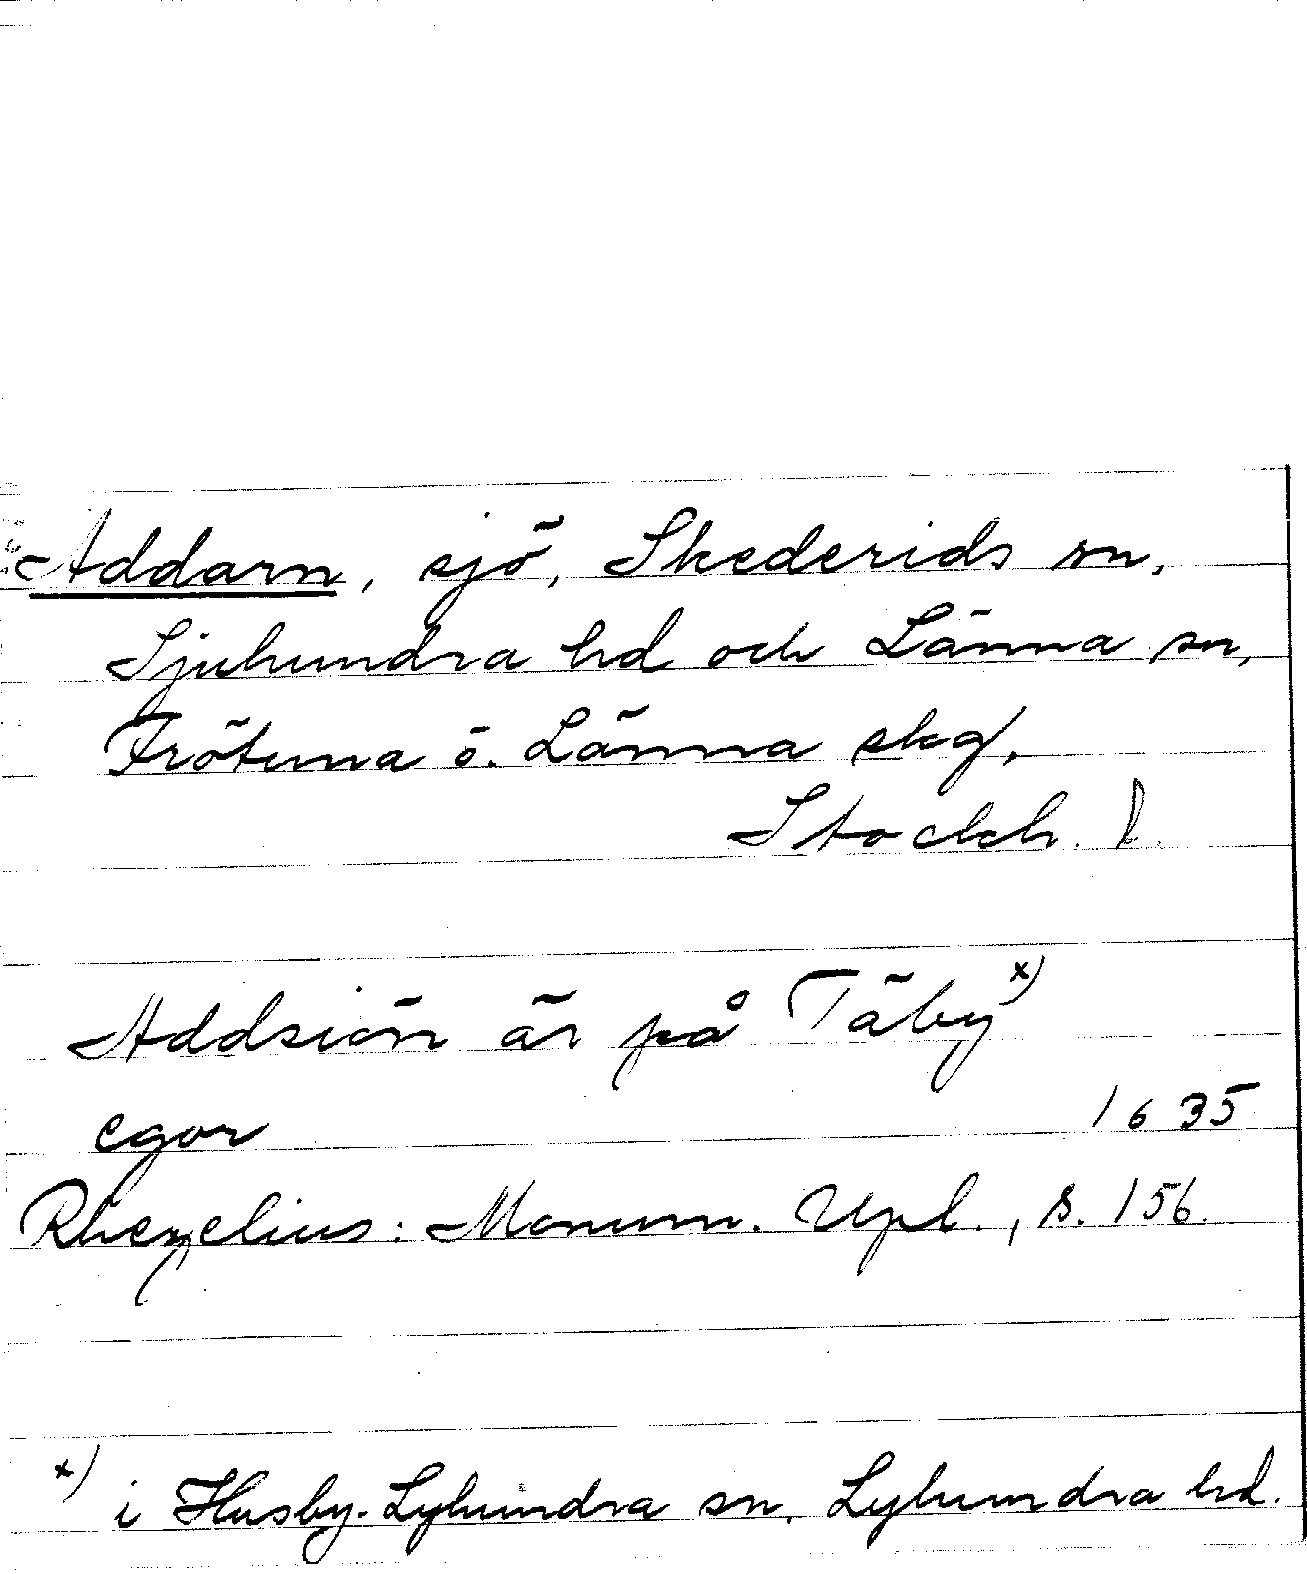 Addarn, sjö, Skederids sn,
Sjuhundra hd och Länna sn,
Frötuna ö. Länna skg,
Stockh. l.
Addsiön är på Täby x)
egor 1635
Rhezelius: Monum. Upl., s. 156.
x) i Husby-Lyhundra sn, Lyhundra hd.